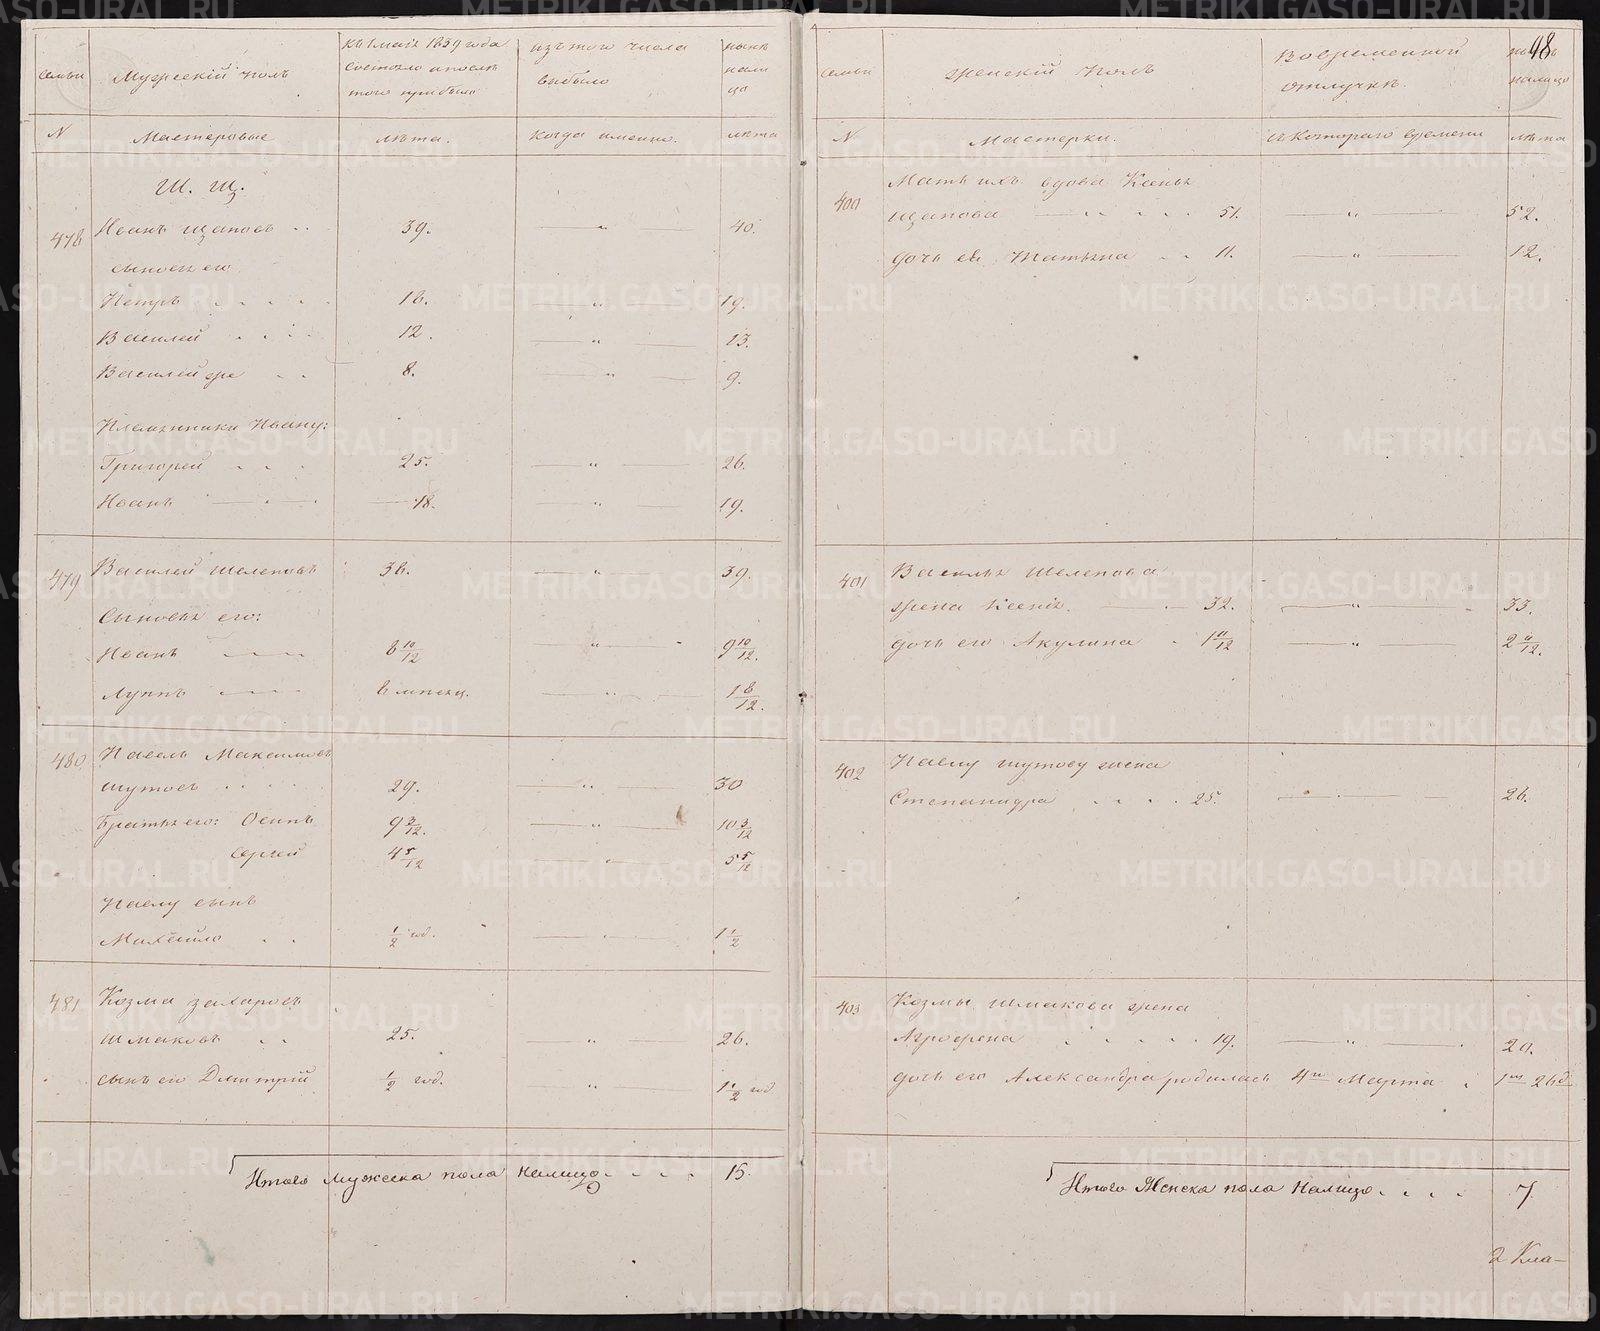 семьи
Мужескій полъ
къ 1 маія 1839 года
состояло и послѣ
того прибыло
изъ того числа
выбыло
нынѣ
нали
цо
N
Мастеровые
лѣта.
когда именно.
лѣта
Ш. Щ.
478
Иванъ Щаповъ
39.
"
40.
сыновья его
Петръ
18.
"
19.
Василей
12.
"
13.
Василей же
8.
"
9.
Племянники Ивану:
Григорей
25.
"
26.
Иванъ
18.
"
19.
479
Василей Шелеповъ
38.
"
39.
Сыновья его:
Иванъ
8 10/12
"
9 10/12.
Луппъ
8 месяц.
"
1 8/12.
480
Павелъ Максимовъ
Шутовъ
29.
"
30
Братья его: Осипъ
9 3/12.
"
10 3/12
Сергей
4 5/12
"
5 5/12
Павлу сынъ
Михайло
1/2 год.
"
1 1/2
481
Козма Захаровъ
Шмаковъ
25.
"
26.
сынъ его Дмитрій
1/2 год.
"
1 1/2 год
Итого Мужеска пола налицо
15.
48
семьи
Женскій полъ
Во временной
отлучкѣ.
налицо
N
Мастерки.
съ котораго времени
лѣта
400
Мать ихъ вдова Ксенья
Щапова
51.
"
52.
дочь ея Татьяна
11.
"
12.
401
Василья Шелепова
жена Ксенія.
32.
"
33.
дочь его Акулина
1 11/12
"
2 11/12.
402
Павлу Шутову жена
Степанида
25.
"
26.
403
Козмы Шмакова жена
Агрофена
19.
"
20.
дочь его Александра родилась 4го Марта
1 м 26 д
Итого Женска пола налицо
7
2 Кла-
METRIKI.GASO-URAL.RU